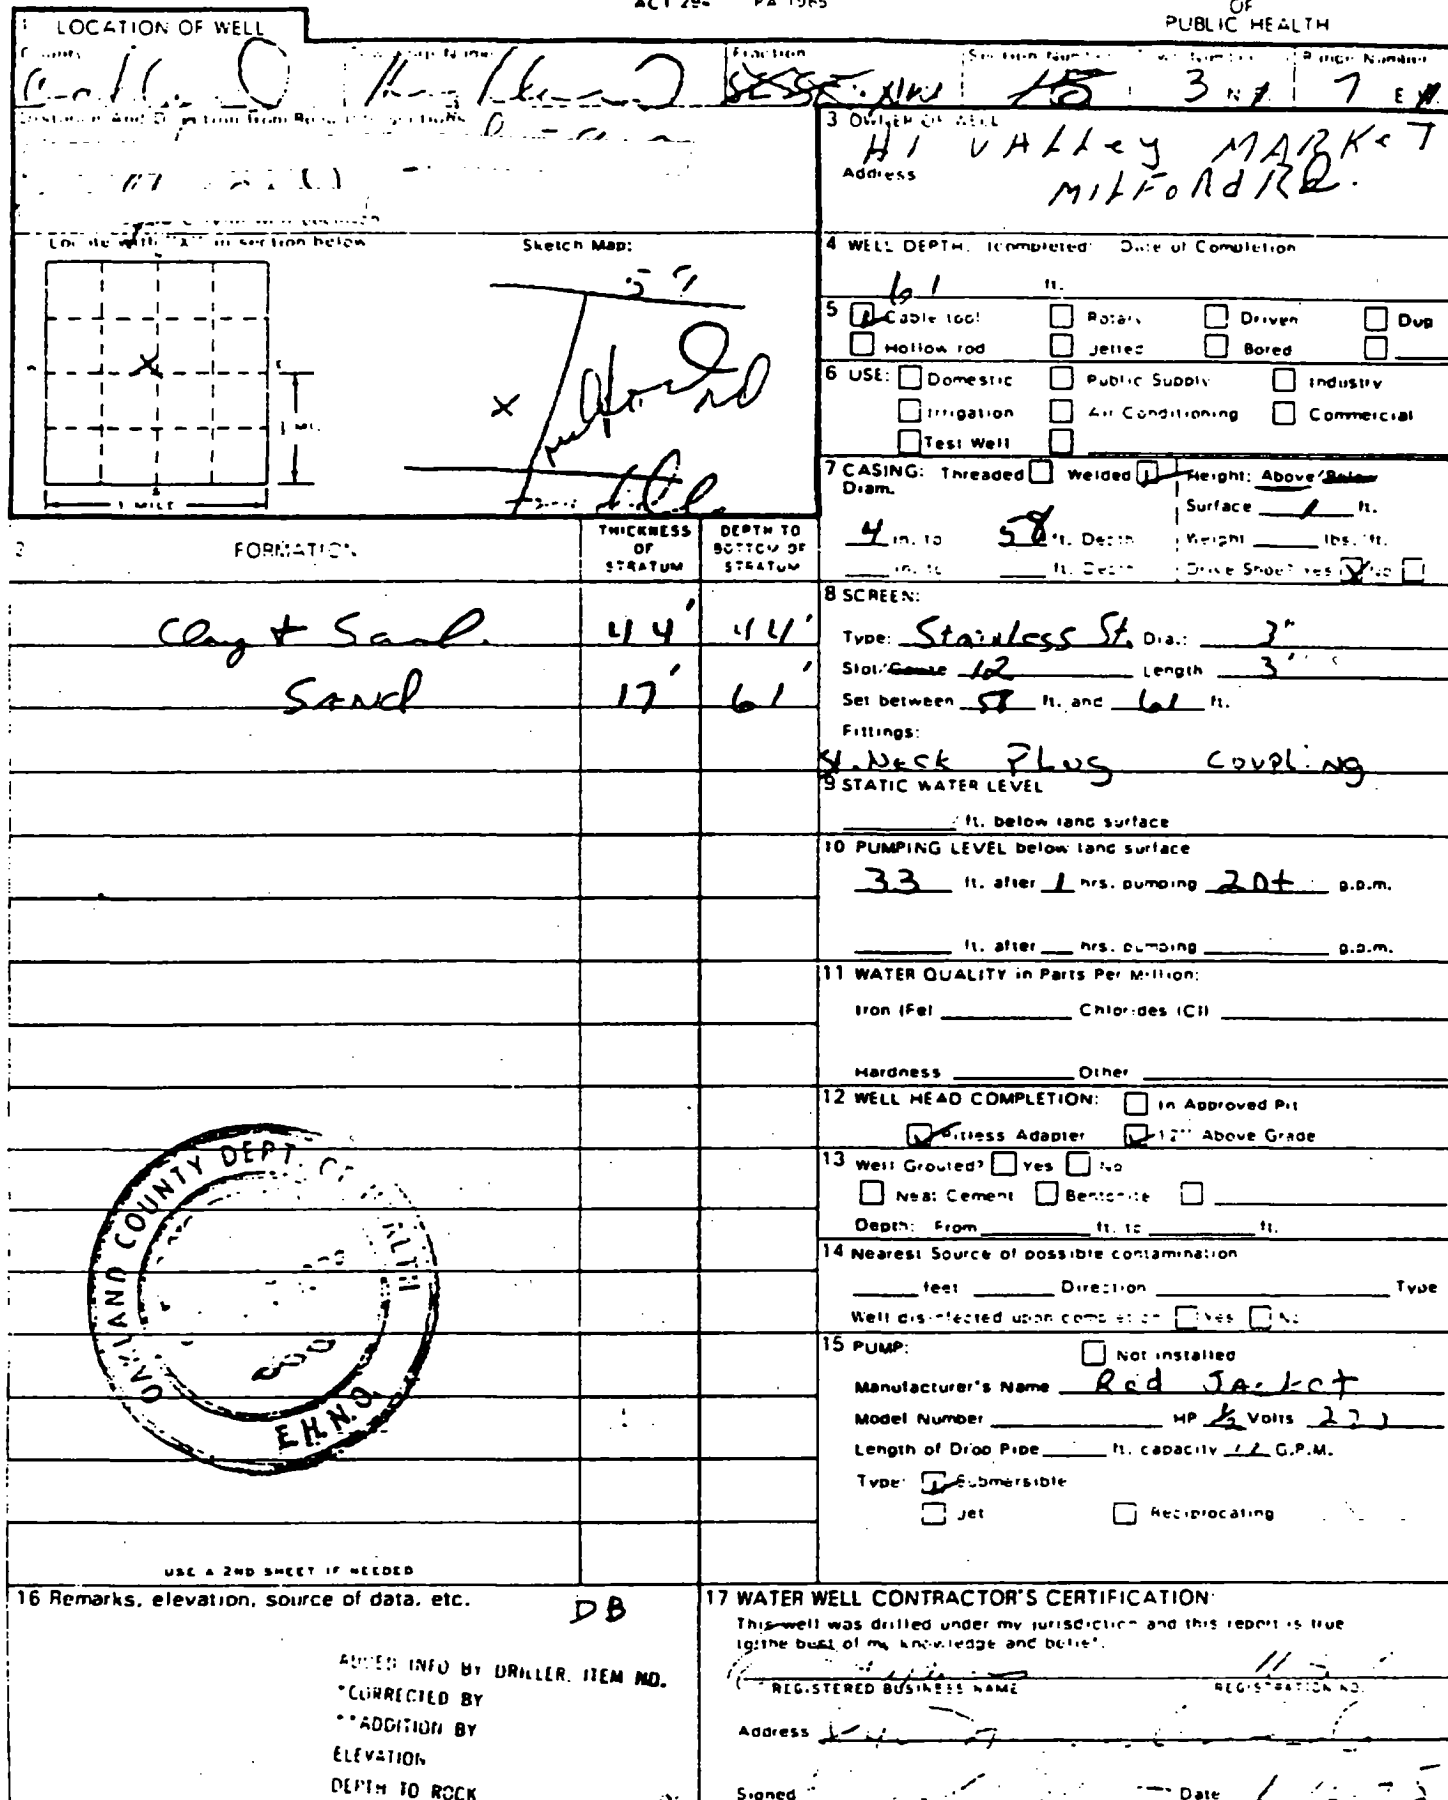 ACT 294 PA 1965
OF
PUBLIC HEALTH
1 LOCATION OF WELL
County
Township Name
Fraction
Section Number
Town Number
Range Number
NW
15
3 N
7 E
Distance And Direction from Road Intersections
Locate with "X" in section below
Sketch Map:
X
1 MILE
59
X
Milford Rd
3 OWNER OF WELL
HI VALLEY MARKET
Address
MILFORD RD.
4 WELL DEPTH: (completed) Date of Completion
61 ft.
5 Cable tool Rotary Driven Dug
Hollow rod Jetted Bored
6 USE: Domestic Public Supply Industry
Irrigation Air Conditioning Commercial
Test Well
7 CASING: Threaded Welded Height: Above/Below
Diam.
Surface 1 ft.
4 in. to 58 ft. Depth Weight lbs./ft.
in. to ft. Depth Drive Shoe? Yes No
2 FORMATION
THICKNESS OF STRATUM
DEPTH TO BOTTOM OF STRATUM
Clay + Sand 44' 44'
SAND 17' 61'
USE A 2ND SHEET IF NEEDED
8 SCREEN:
Type: Stainless St. Dia.: 3"
Slot/Gauze 12 Length 3'
Set between 58 ft. and 61 ft.
Fittings:
NECK PLUG COUPLING
9 STATIC WATER LEVEL
ft. below land surface
10 PUMPING LEVEL below land surface
33 ft. after 1 hrs. pumping 20+ g.p.m.
ft. after hrs. pumping g.p.m.
11 WATER QUALITY in Parts Per Million:
Iron (Fe) Chlorides (Cl)
Hardness Other
12 WELL HEAD COMPLETION: In Approved Pit
Pitless Adapter 12" Above Grade
13 Well Grouted? Yes No
Neat Cement Bentonite
Depth: From ft. to ft.
14 Nearest Source of possible contamination
feet Direction Type
Well disinfected upon completion Yes No
15 PUMP: Not installed
Manufacturer's Name Red Jacket
Model Number HP 1/2 Volts
Length of Drop Pipe ft. capacity G.P.M.
Type: Submersible
Jet Reciprocating
OAKLAND COUNTY DEPT. OF HEALTH
E.H.N.O.
16 Remarks, elevation, source of data, etc.
DB
ADDED INFO BY DRILLER, ITEM NO.
*CORRECTED BY
**ADDITION BY
ELEVATION
DEPTH TO ROCK
17 WATER WELL CONTRACTOR'S CERTIFICATION:
This well was drilled under my jurisdiction and this report is true
to the best of my knowledge and belief.
REGISTERED BUSINESS NAME REGISTRATION NO.
Address
Signed Date